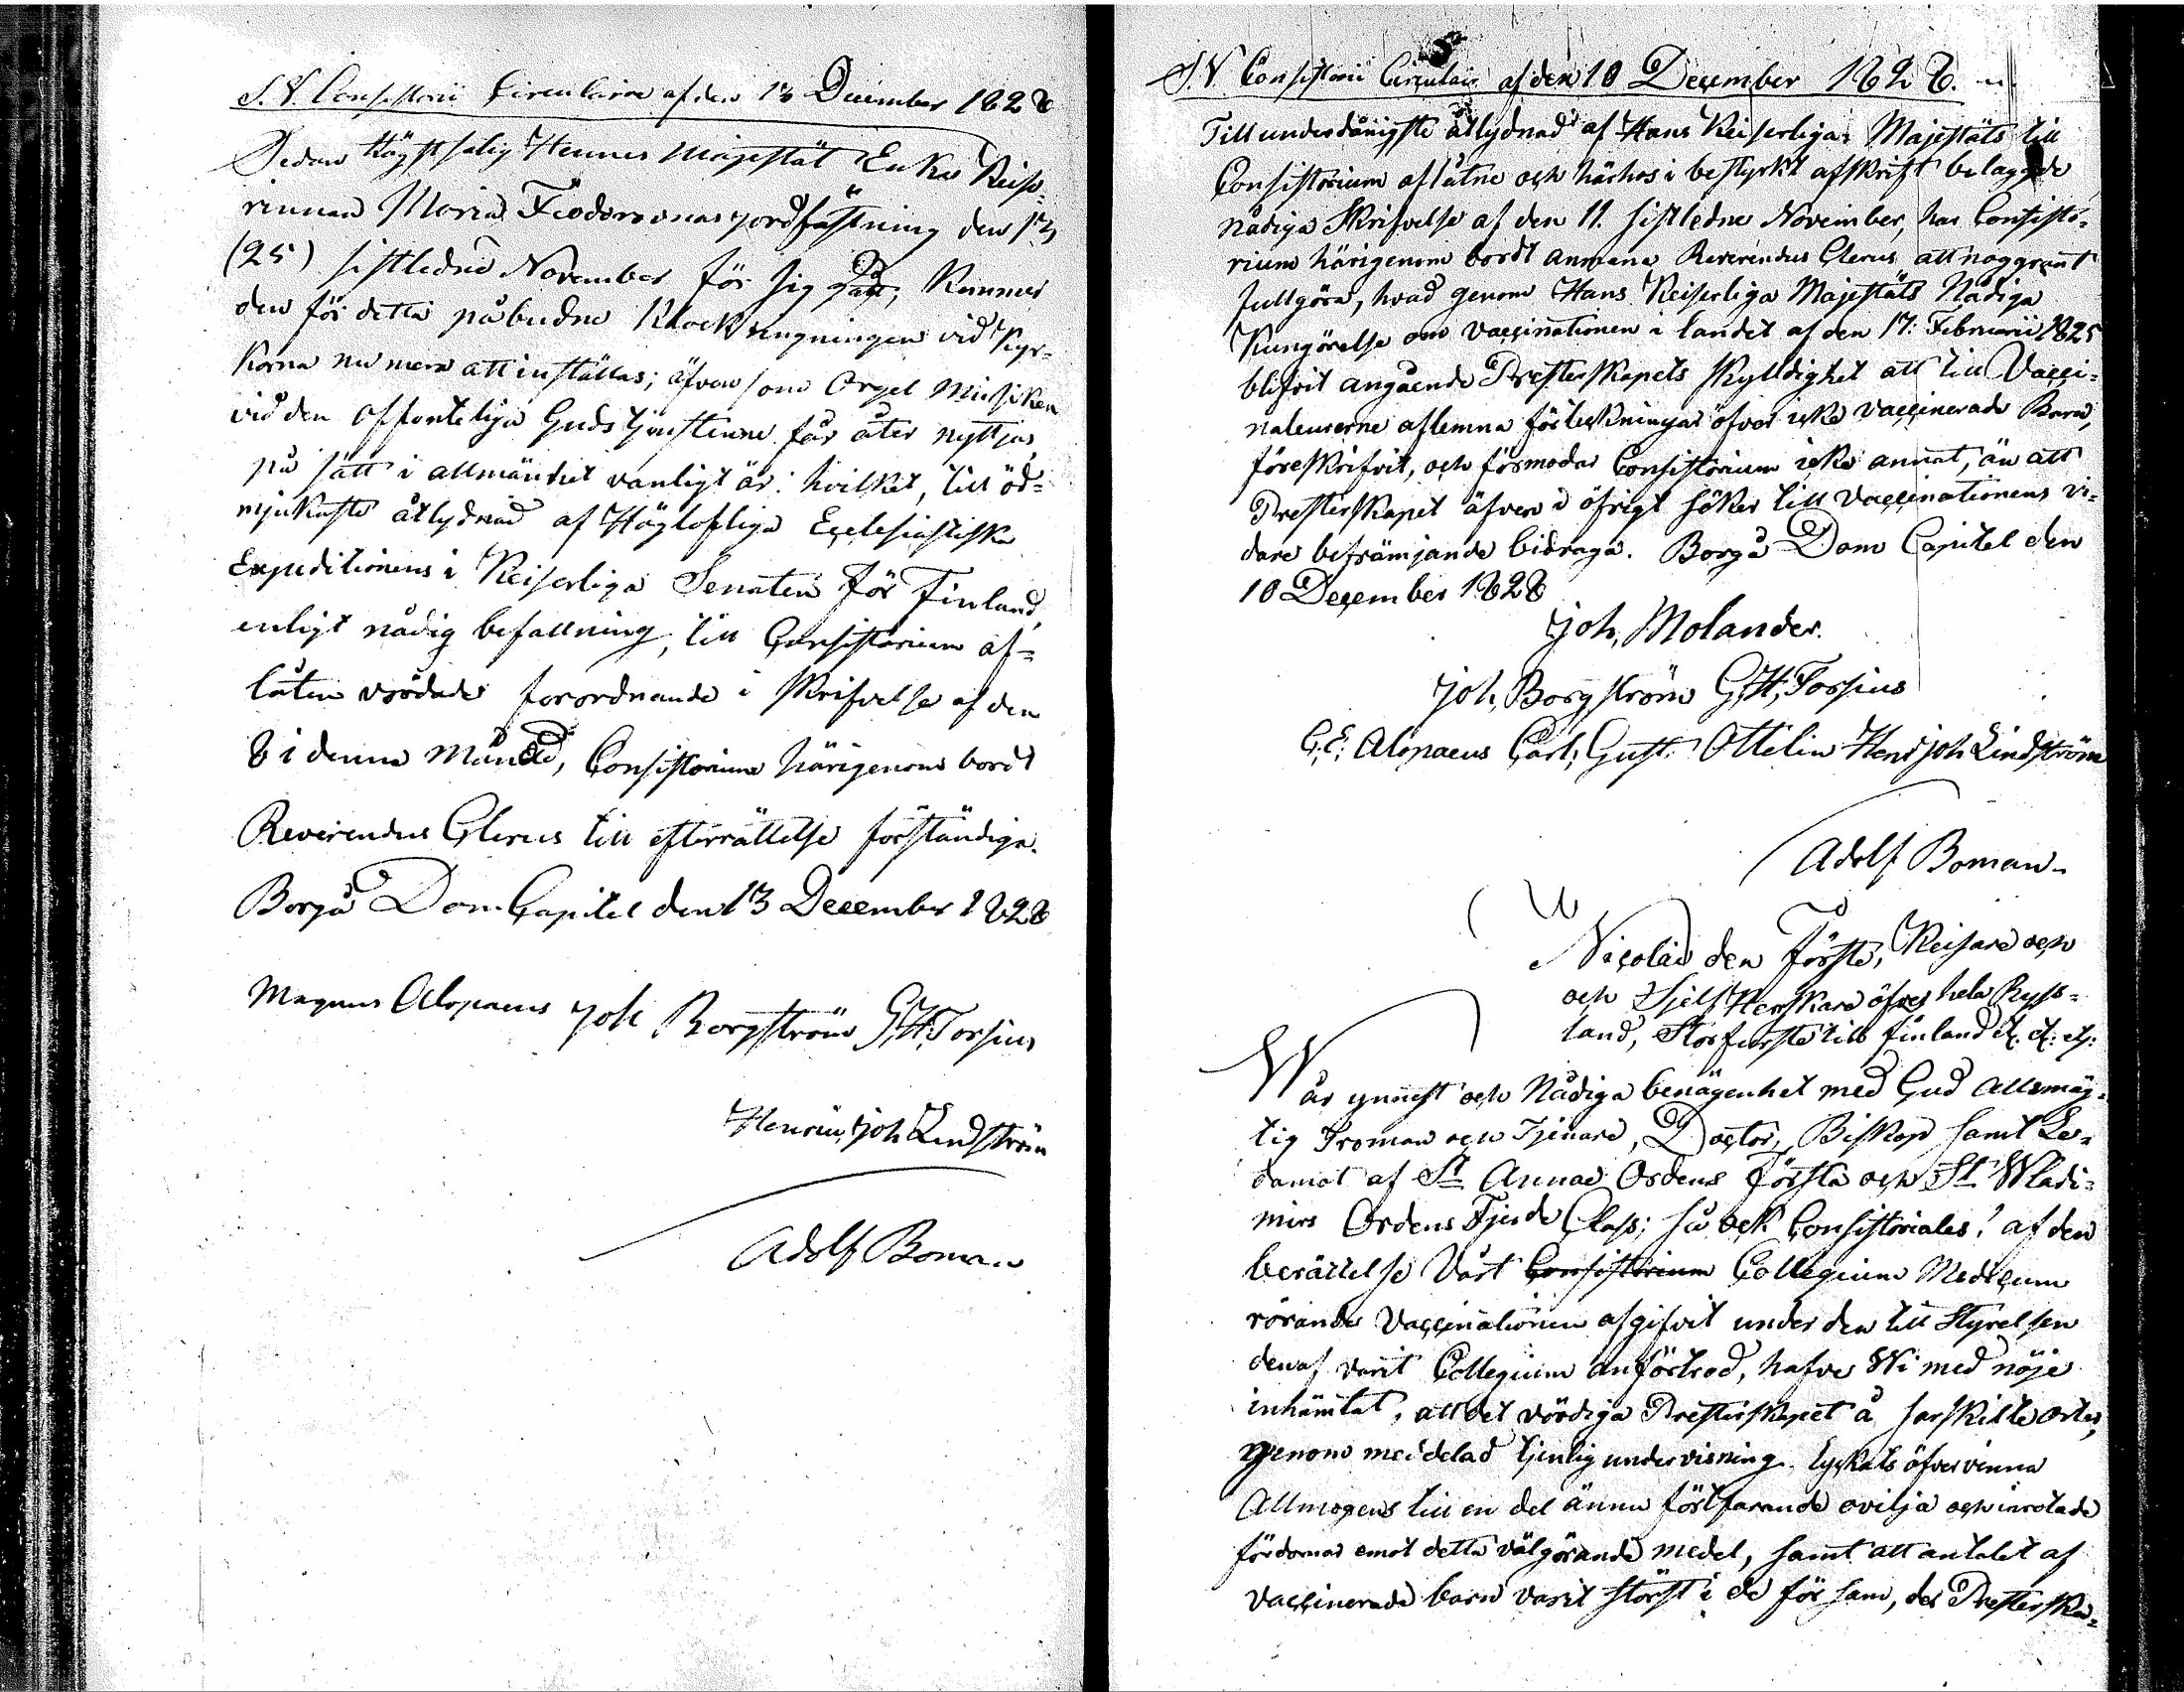 S. V. Consistorii Circulaire af den 13 December 1828
Sedan Högstsalig Hennes Majestät Enke Kejsa-
rinnan Maria Feodorovnas jordfästning den 13
(25) sistledne November för sig gått, kommer
den för detta påbudne Klockringningen vid Kyr-
korna nu mera att inställas; äfven som Orgel Musiken
vid den offenteliga Gudstjenstenne får åter nyttjas
på sätt i allmänhet vanligt är: hvilket, till öd-
mjukaste åtlydnad af Höglofliga Ecclesiastiska
Expeditionens i Keiserliga Senaten för Finland,
enligt nådig befallning, till Consistorium af-
låten vördade förordnande i skrifvelse af den
8 i denna Månad, Consistorium härigenom bordt
Reverendus Clerus till efterrättelse förständiga.
Borgå Dom Capitel den 13 December 1828
Magnus Alopaeus Joh Borgström G. H. Forsius
Henric Joh Lindström
Adolf Boman
S. V. Consistorii Circulair af den 10 December 1828.
Till underdånigste åtlydnad af Hans Keiserliga Majestäts till
Consistorium aflåtne och härhos i bestyrkt afskrift belaggde
nådiga Skrifvelse af den 11. sistledne November, har Consisto-
rium härigenom bordt anmana Reverendus Clerus att noggrant
fullgöra, hvad genom Hans Keiserliga Majestäts Nådiga
Kungörelse om Vaccinationen i landet af den 17. Februarii 1825
blifvit angående Presterskapets skylldighet att till Vacci-
nateurerne aflemna förteckningar öfver icke vaccinerade Barn,
föreskrifvit, och förmodar Consistorium icke annat, än att
Presterskapet äfven i öfrigt söker till Vaccinationens vi-
dare befrämjande bidraga. Borgå Dom Capitel den
10 December 1828
Joh, Molander.
Joh, Borgström G, H, Forsius
C. E. Alopaeus Carl, Gust. Ottelin Henr Joh Lindström
Adolf Boman
Nicolai den Förste, Keisare och
och Sjelf Herrskare öfver hela Ryss-
land, Storfurste till Finland et. et. etc.
Wår ynnest och Nådiga benägenhet med Gud allsmäg-
tig Troman och Tjenare, Doctor, Biskop samt Le-
damot af St Annae Ordens första och St Wladi-
mirs Ordens Fjerde Class; så ock Consistoriales! af den
berättelse Vårt Consistorium Collegium Medicum
rörande Vaccinationen afgifvit under den till Styrelsen
deraf varit Collegium anförtrod, hafve Wi med nöje
inhämtat, att det vördiga Presterskapet å särskilte orter,
genom meddelad tjenlig undervisning lyckats öfvervinna
Allmogens till en del ännu fortfarande ovilja och inrotade
fördomar emot detta välgörande medel, samt att antalet af
vaccinerade barn varit störst i de försam, der Presterska-